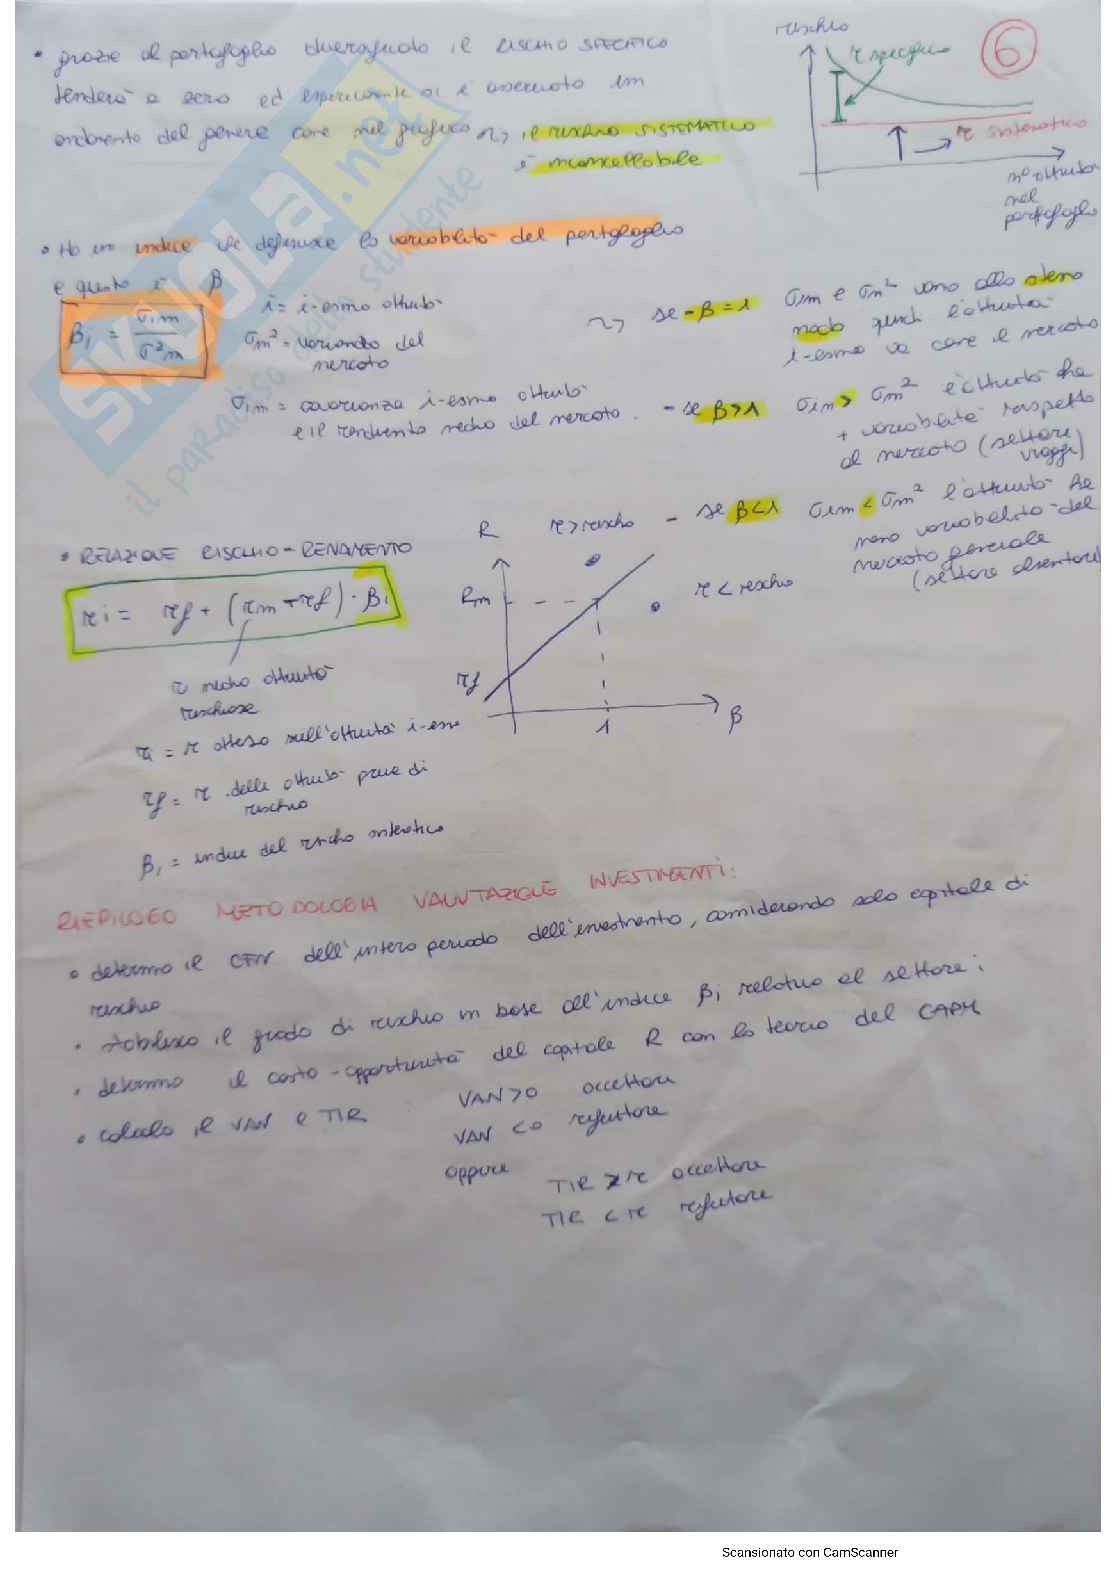 rischio
6
• grazie al portafoglio diversificato il RISCHIO SPECIFICO
r specifico
tenderà a zero ed esperienze si è associato un
andamento del genere come nel grafico ~> il rischio SISTEMATICO
è incancellabile
r sistematico
n° attività
nel
portafoglio
• Ho un indice che definisce la variabilità del portafoglio
e questo è β
βi = σim / σ²m
i = i-esimo attività
σm² = varianza del
mercato
σim = covarianza i-esmo attività
e il rendimento medio del mercato.
~> se - β = 1 σim e σm² vano allo stesso
modo quindi l'attività
i-esimo va come il mercato
- se β>1 σim > σm² è attività che
+ variabilità rispetto
al mercato (settore
viaggi)
- se β<1 σim < σm² l'attività ha
meno variabilità del
mercato generale
(settore alimentare)
• RELAZIONE RISCHIO-RENDIMENTO
ri = rf + (rm - rf) · βi
r medio attività
rischiose
ri = r atteso sull'attività i-esimo
rf = r delle attività prive di
rischio
βi = indice del rischio sistematico
R
r > rischio
Rm
r < rischio
rf
1
β
RIEPILOGO METODOLOGIA VALUTAZIONE INVESTIMENTI:
• determino il CFN dell'intero periodo dell'investimento, considerando solo capitale di
rischio
• stabilisco il grado di rischio in base all'indice βi relativo al settore i
• determino il costo-opportunità del capitale R con la teoria del CAPM
• calcolo il VAN e TIR
VAN > 0 accettare
VAN < 0 rifiutare
oppure
TIR > r accettare
TIR < r rifiutare
SKUOLA.net
il paradiso dello studente
Scansionato con CamScanner